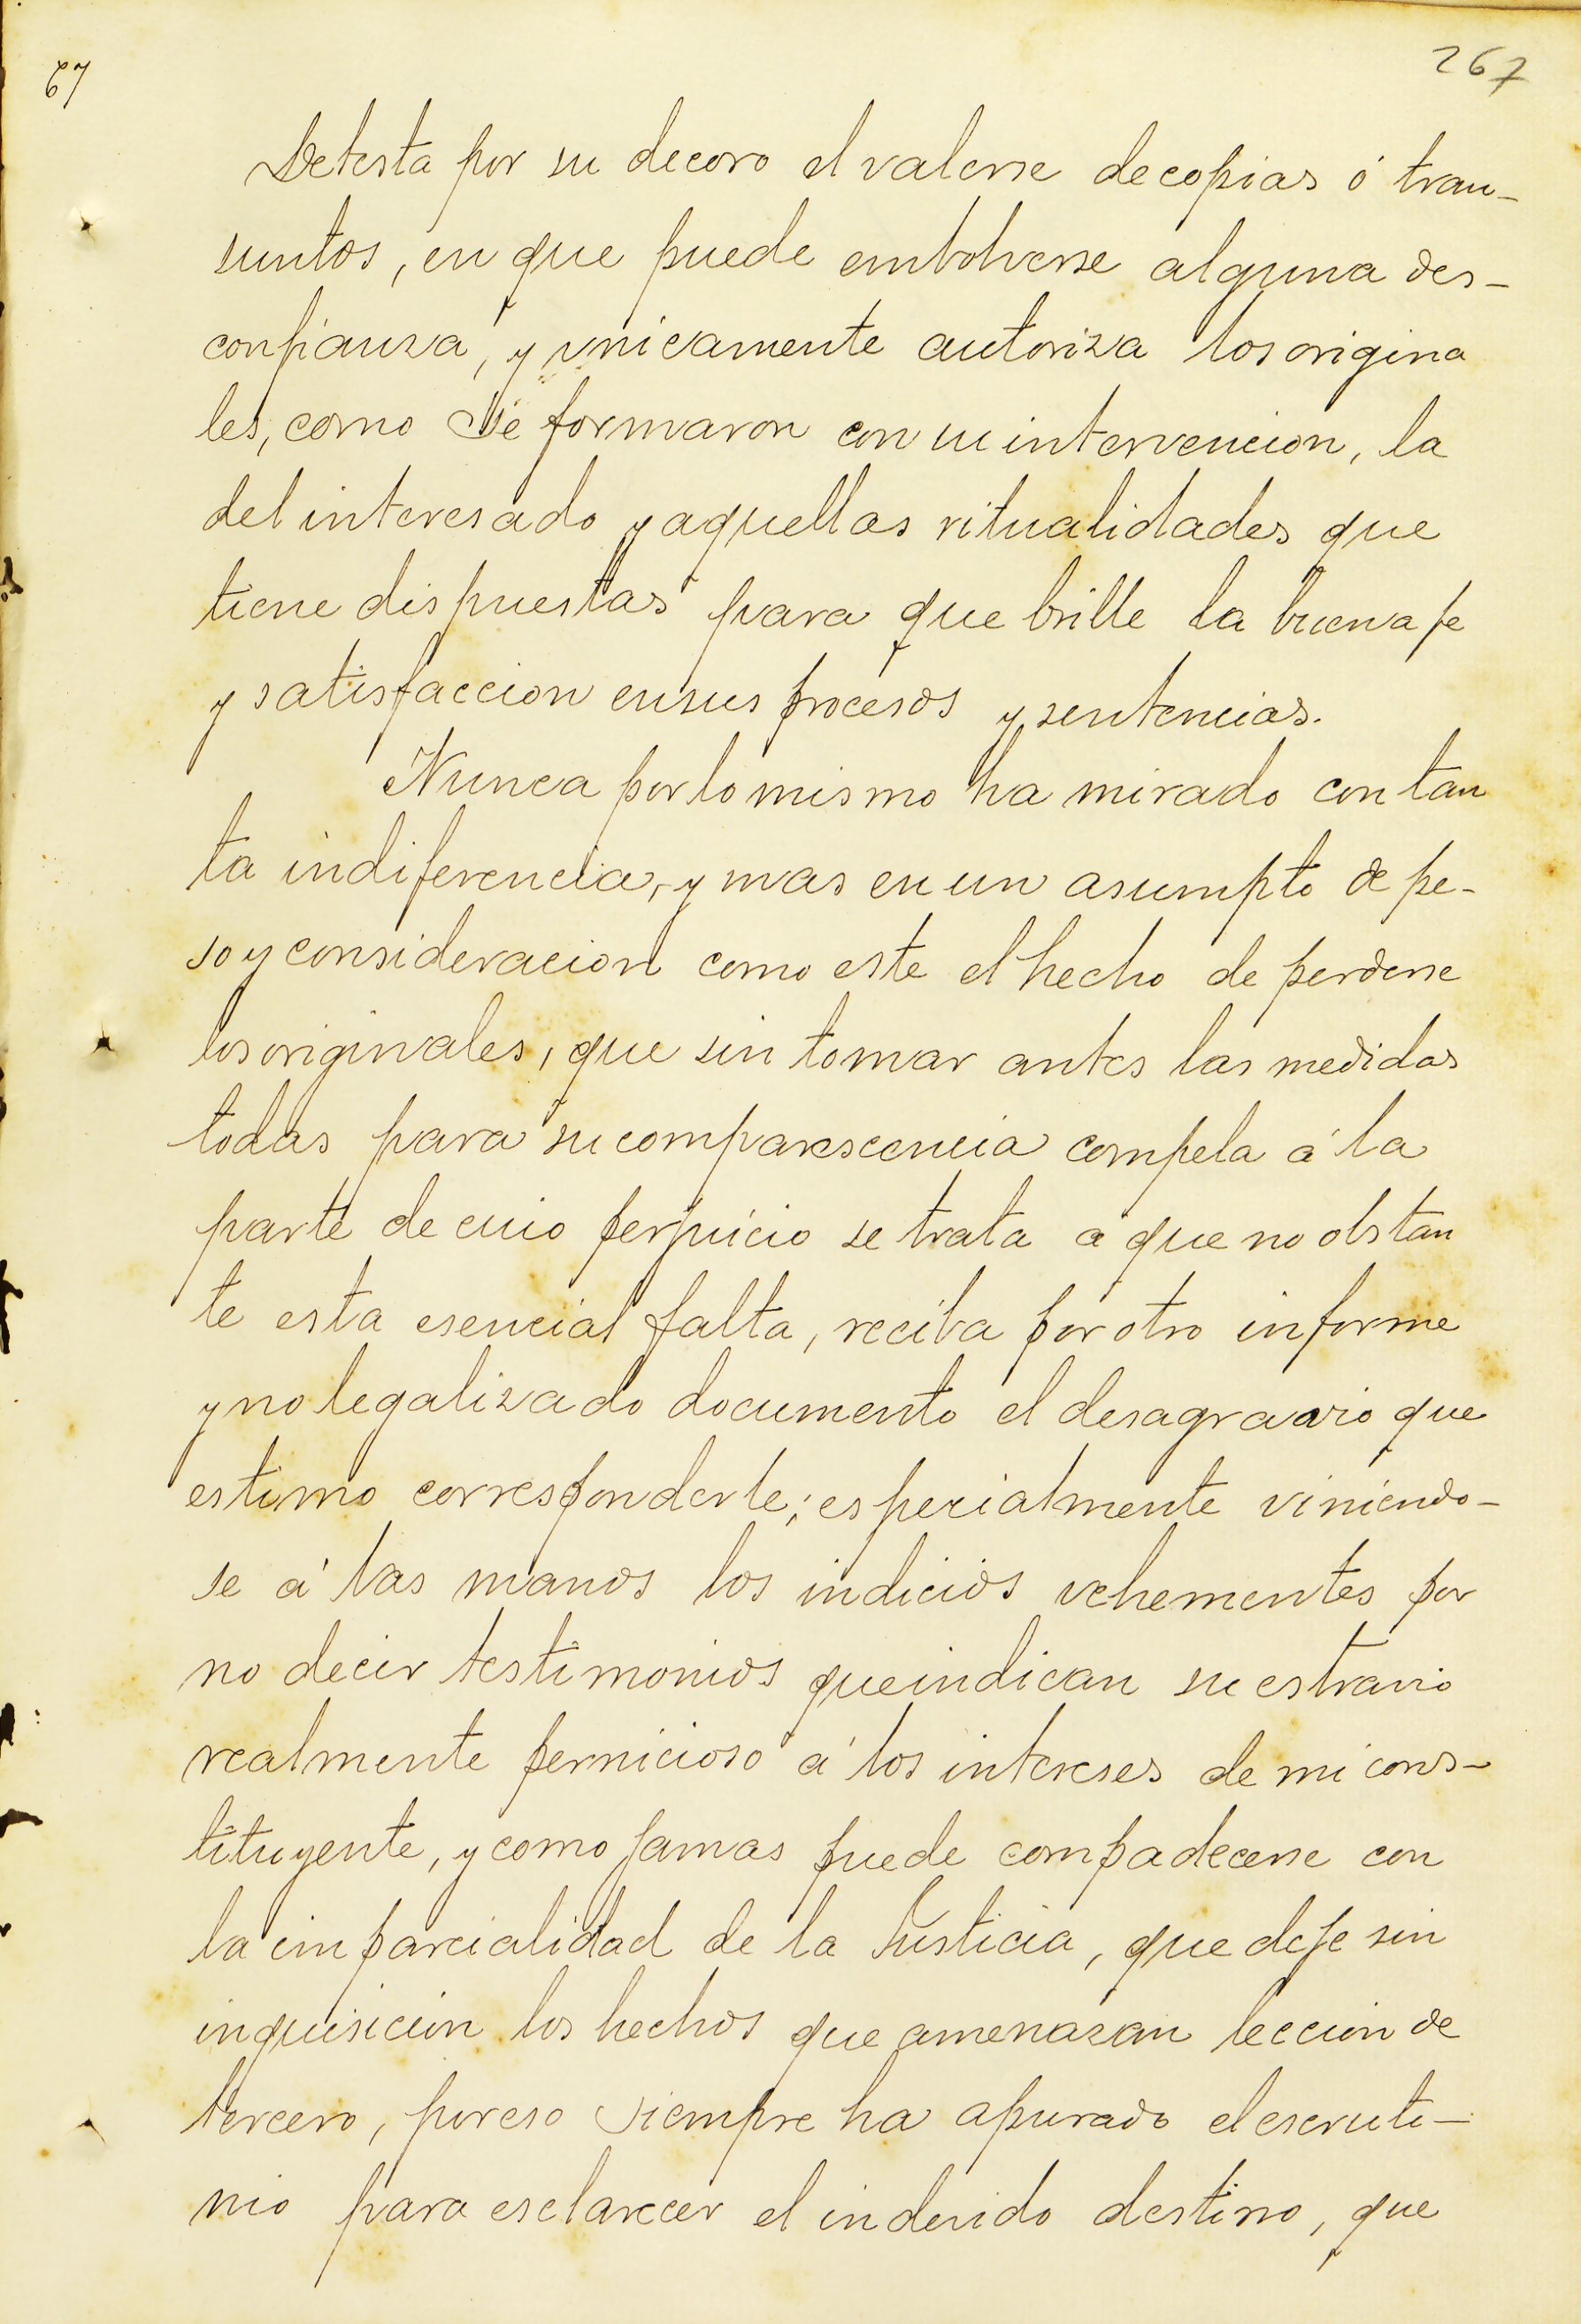 67
267
Detesta por su decoro el valerse de copias ó tran-
suntos, en que puede embolverse alguna des-
confianza, y vnicamente autoriza los origina
les, como Se formaron con su intervencion, la
del interesado y aquellas ritualidades que
tiene dispuestas para que brille la buena fe
y satisfaccion en sus procesos y sentencias.
Nunca por lo mismo ha mirado con tan
ta indiferencia, y mas en un asumpto de pe-
so y consideracion como este el hecho de perderse
los originales, que sin tomar antes las medidas
todas para su comparescencia compela á la
parte de cuio perjuicio se trata a que no obstan
te esta esencial falta, reciba por otro informe
y no legalizado documento el desagravio que
estimo corresponderle; especialmente viniendo-
se á las manos los indicios vehementes por
no decir testimonios que indican su estravio
realmente pernicioso á los intereses de mi cons-
tituyente, y como jamas puede compadecerse con
la imparcialidad de la Justicia, que deje sin
inquisicion los hechos que amenazan leccion de
tercero, por eso siempre ha apurado el escruti-
nio para esclarecer el indevido destino, que